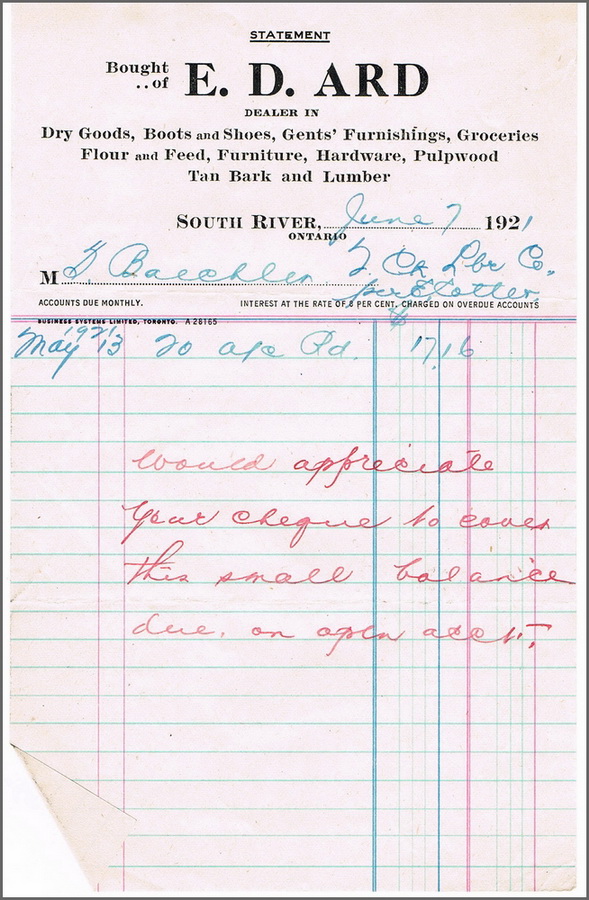 STATEMENT
Bought
..of E. D. ARD
DEALER IN
Dry Goods, Boots and Shoes, Gents' Furnishings, Groceries
Flour and Feed, Furniture, Hardware, Pulpwood
Tan Bark and Lumber
SOUTH RIVER, June 7 1921
ONTARIO
M G. Baechler Lbr Co.
per
ACCOUNTS DUE MONTHLY. INTEREST AT THE RATE OF 8 PER CENT. CHARGED ON OVERDUE ACCOUNTS
BUSINESS SYSTEMS LIMITED, TORONTO. A 28165
1921 $
May 13 To a/c Rd. 17.16
Would appreciate
your cheque to cover
this small balance
due. on open acct.